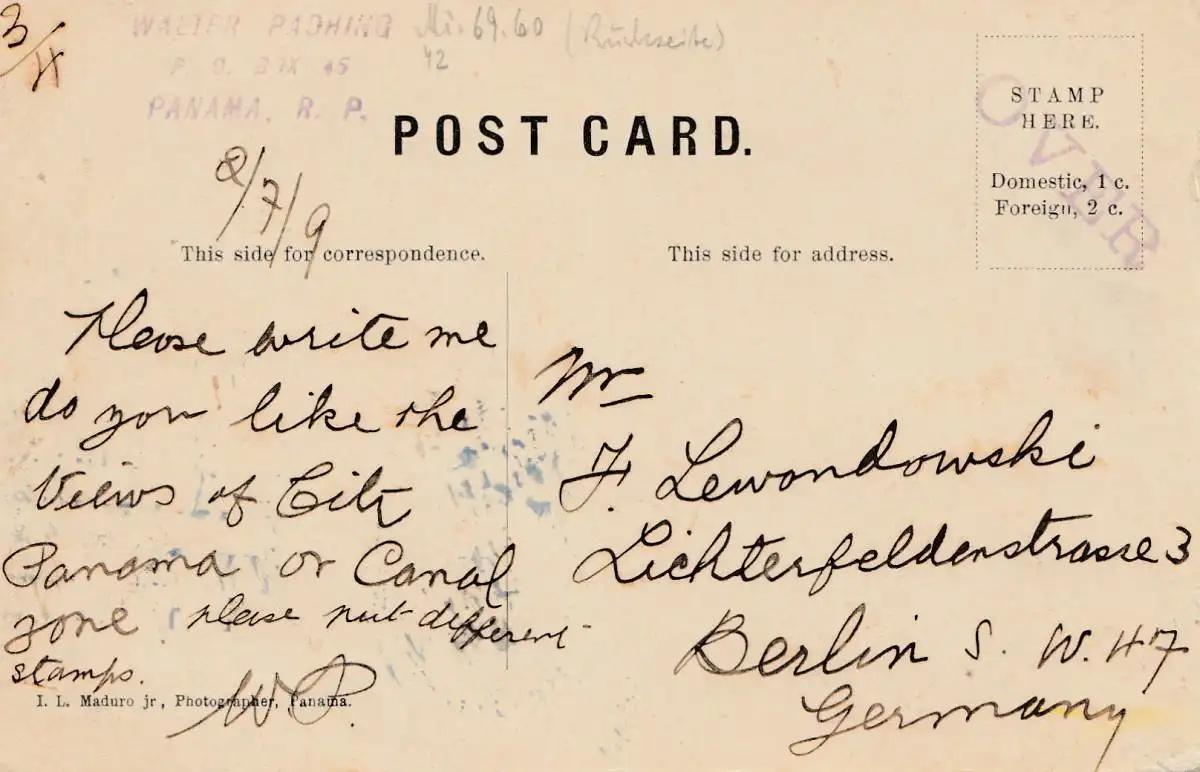 3/
WALTER PADHING
P. O. BOX 45
PANAMA, R. P.
Mi. 69.60 (Rückseite)
42
POST CARD.
STAMP
HERE.
Domestic, 1 c.
Foreign, 2 c.
OVER
8/7/9
This side for correspondence.
This side for address.
Please write me
do you like the
Views of City
Panama or Canal
zone please put different
stamps.
W P.
I. L. Maduro jr, Photographer, Panama.
Mr
F. Lewandowski
Lichterfelderstrasse 3
Berlin S. W. 47
Germany